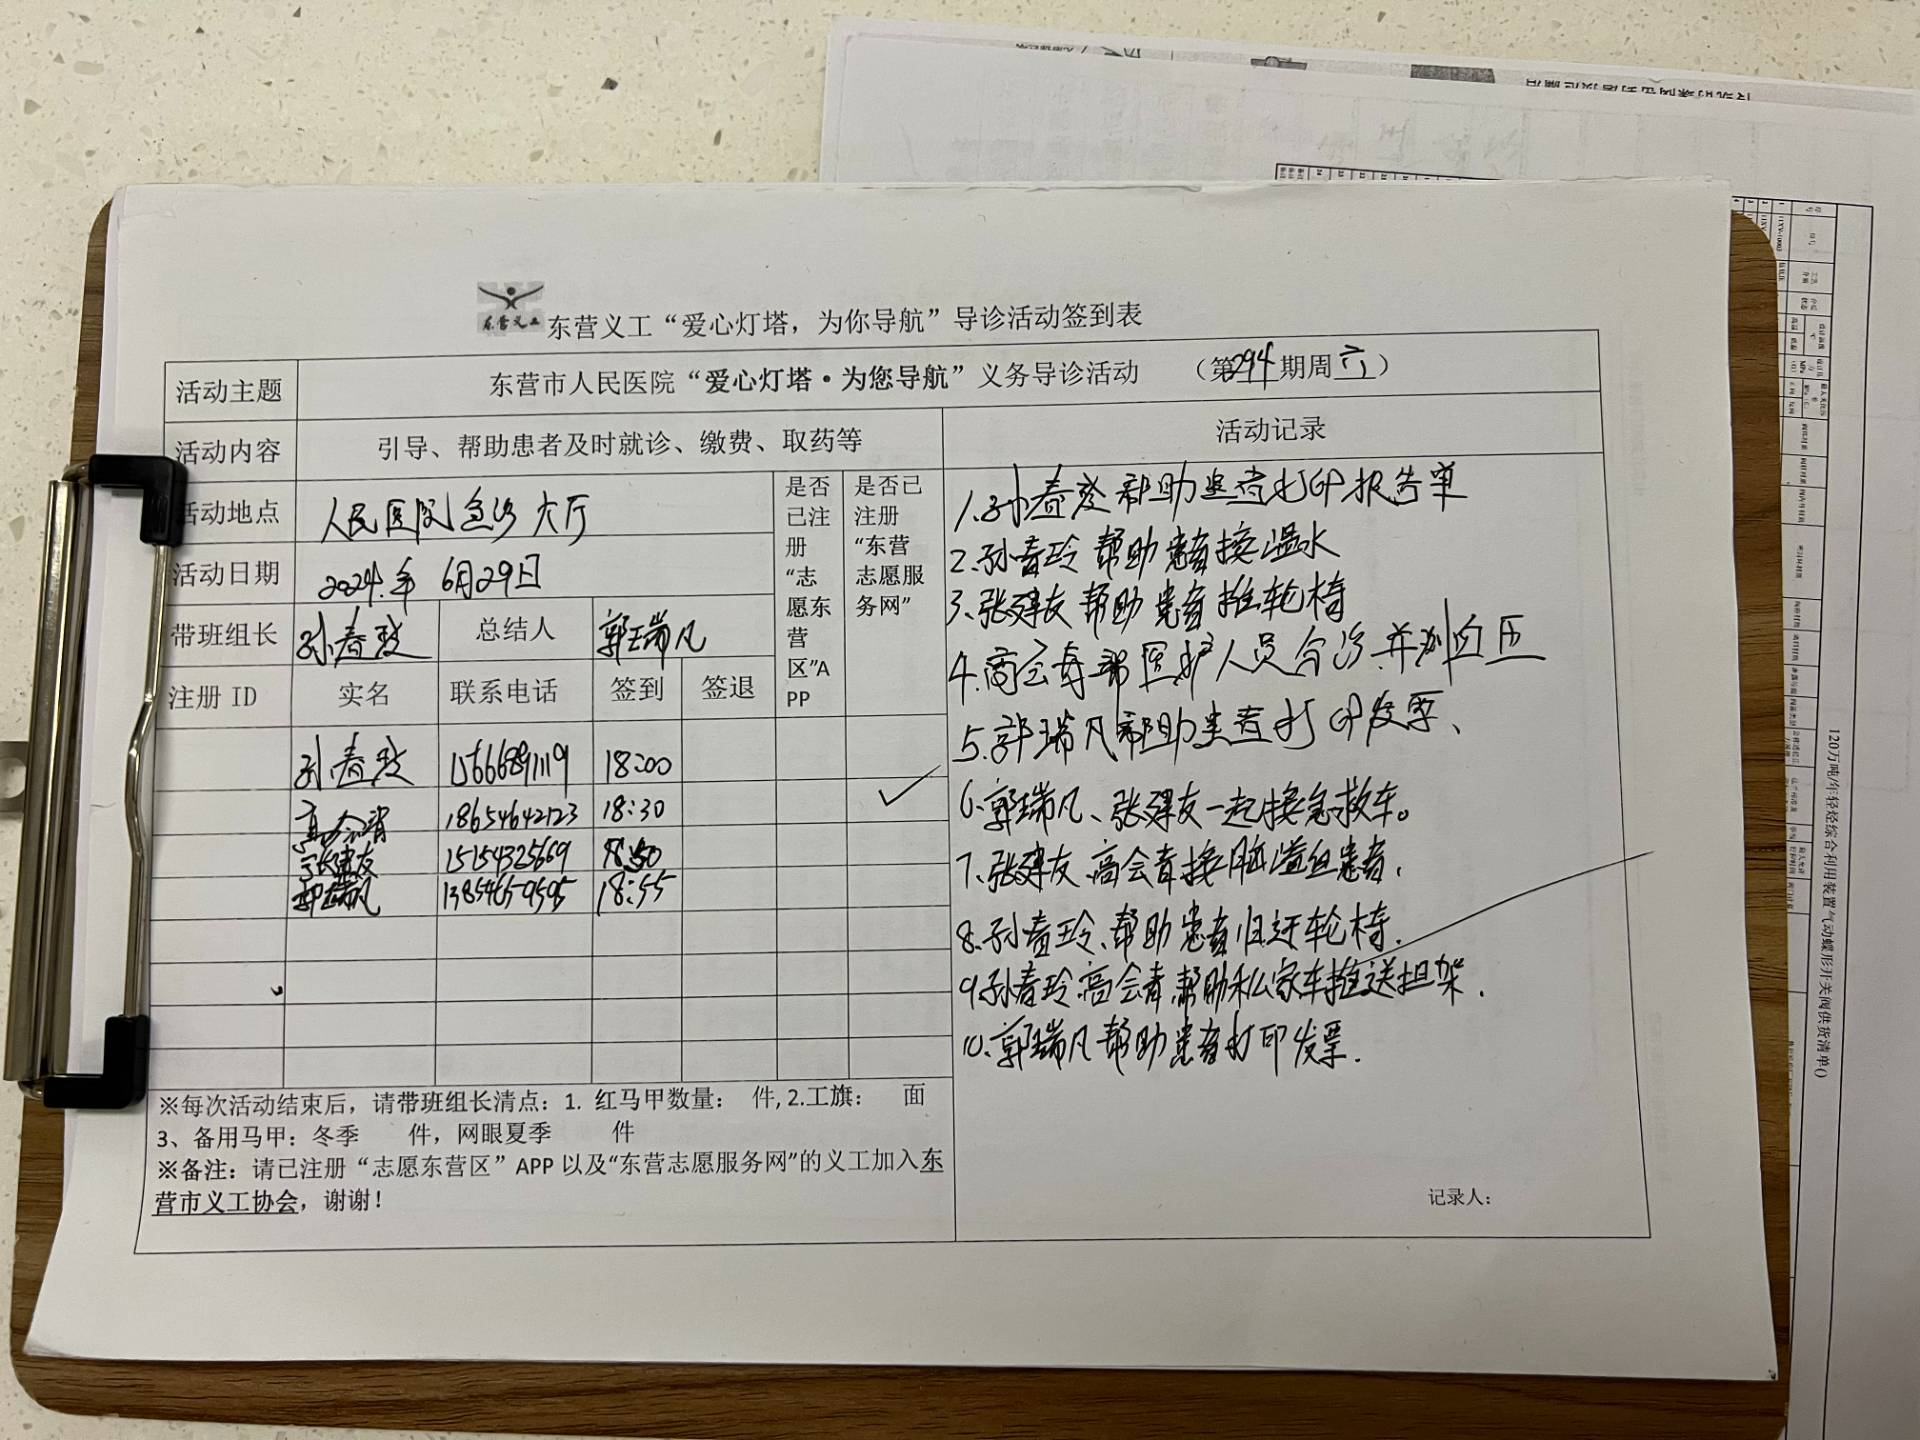 东营义工
东营义工“爱心灯塔，为你导航”导诊活动签到表
活动主题
东营市人民医院“爱心灯塔·为您导航”义务导诊活动 （第294期周六）
活动内容
引导、帮助患者及时就诊、缴费、取药等
活动记录
活动地点
人民医院急诊大厅
活动日期
2024.年 6月29日
带班组长
孙春玲
总结人
郭瑞凡
是否已注册“志愿东营区”APP
是否已注册“东营志愿服务网”
注册 ID
实名
联系电话
签到
签退
孙春玲
15666891119
18:00
高会青
18654642123
18:30
张建友
15154325669
18:50
郭瑞凡
13854659595
18:55
1.孙春玲帮助患者打印报告单
2.孙春玲帮助患者接温水
3、张建友帮助患者推轮椅
4.高会青帮医护人员会诊并测血压
5.郭瑞凡帮助患者打印发票、
6、郭瑞凡、张建友一起接急救车。
7、张建友、高会青接脑溢血患者.
8.孙春玲、帮助患者归还轮椅.
9孙春玲.高会青.帮助私家车推送担架.
10、郭瑞凡帮助患者打印发票.
※每次活动结束后，请带班组长清点：1. 红马甲数量： 件, 2.工旗： 面
3、备用马甲：冬季 件，网眼夏季 件
※备注：请已注册“志愿东营区”APP 以及“东营志愿服务网”的义工加入东
营市义工协会，谢谢！
记录人：
120万吨/年轻烃综合利用装置气动蝶形开关阀供货清单()